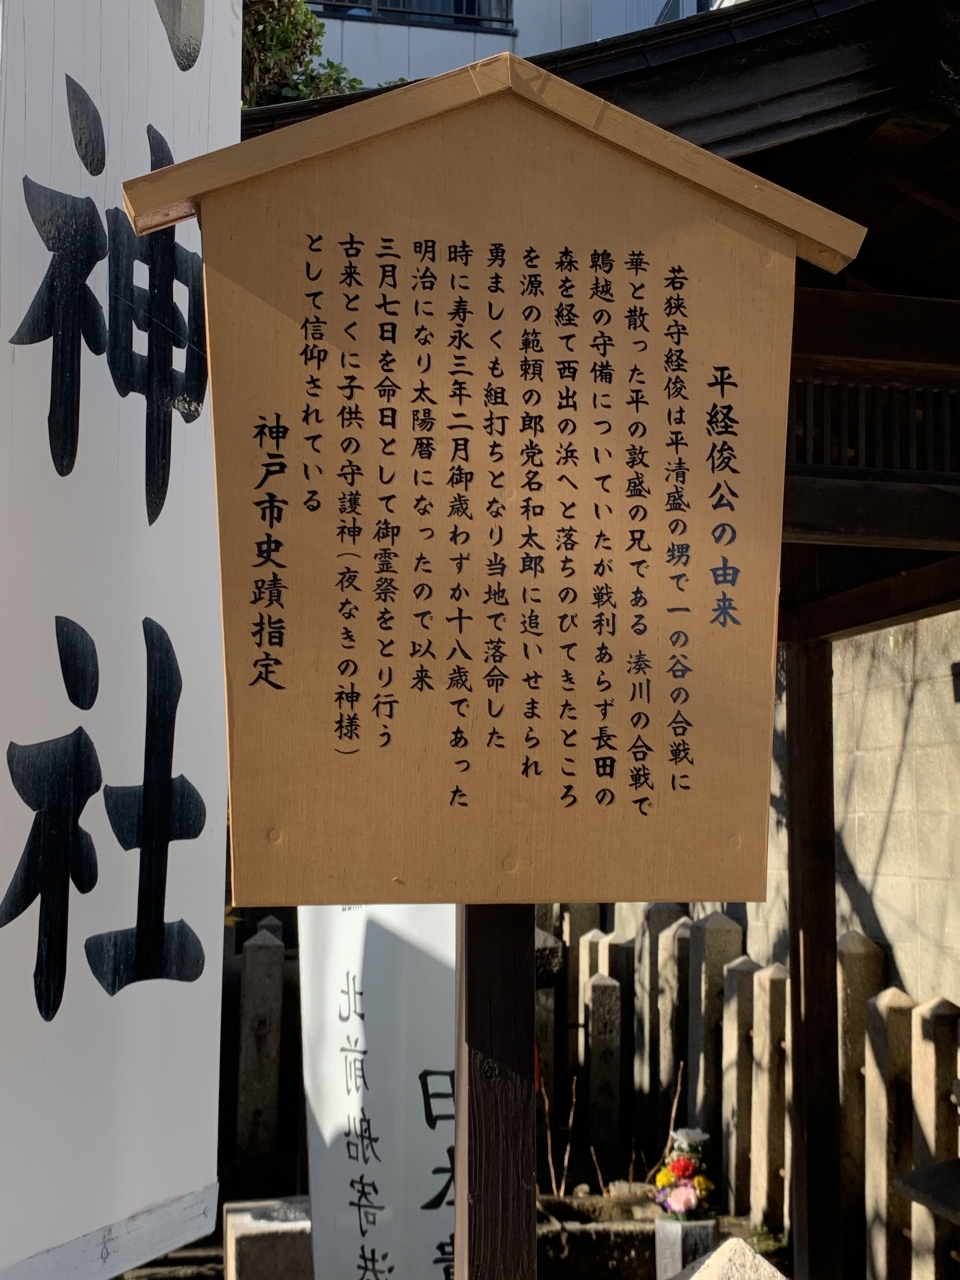 平経俊公の由来
若狭守経俊は平清盛の甥で一の谷の合戦に
華と散った平の敦盛の兄である 湊川の合戦で
鵯越の守備についていたが戦利あらず長田の
森を経て西出の浜へと落ちのびてきたところ
を源の範頼の郎党名和太郎に追いせまられ
勇ましくも組打ちとなり当地で落命した
時に寿永三年二月御歳わずか十八歳であった
明治になり太陽暦になったので以来
三月七日を命日として御霊祭をとり行う
古来とくに子供の守護神(夜なきの神様)
として信仰されている
神戸市史蹟指定
神社
北前船寄港